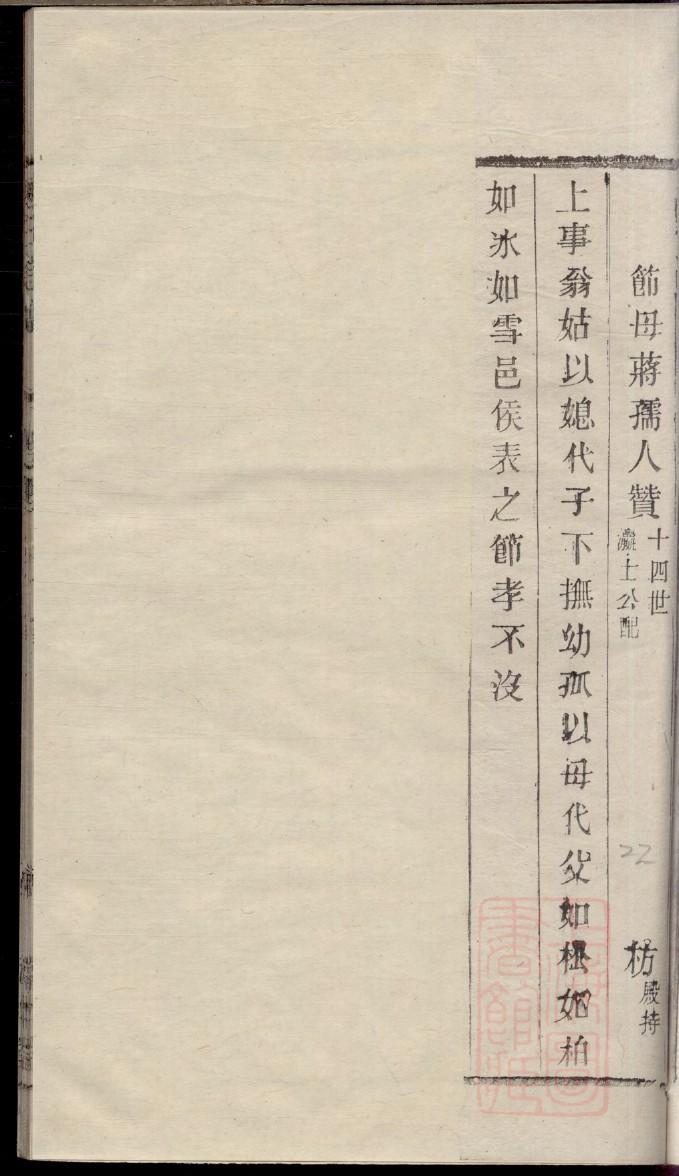 節母蔣孺人贊 十四世瀛士公配 枋 殿持
上事翁姑以媳代子下撫幼孤以母代父如松如柏
如氷如雪邑侯表之節孝不沒
22